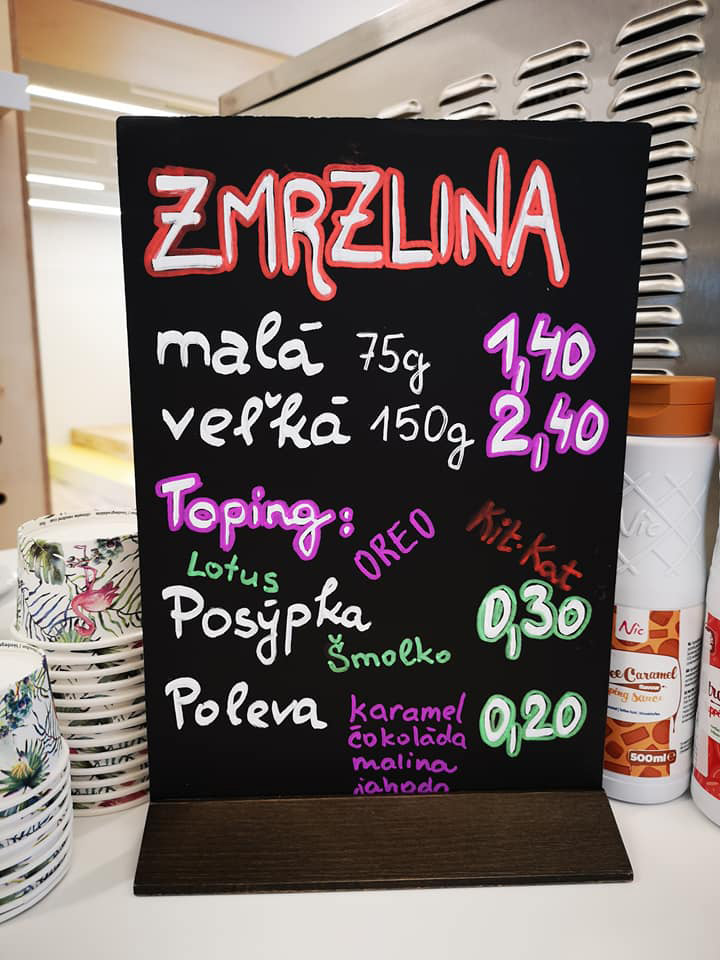 ZMRZLINA
malá 75g 1,40
veľká 150g 2,40
Toping:
OREO
Kit-Kat
Lotus
Posýpka 0,30
Šmolko
Poleva 0,20
karamel
čokoláda
malina
jahoda
Nic
Nic
Caramel
500ml e